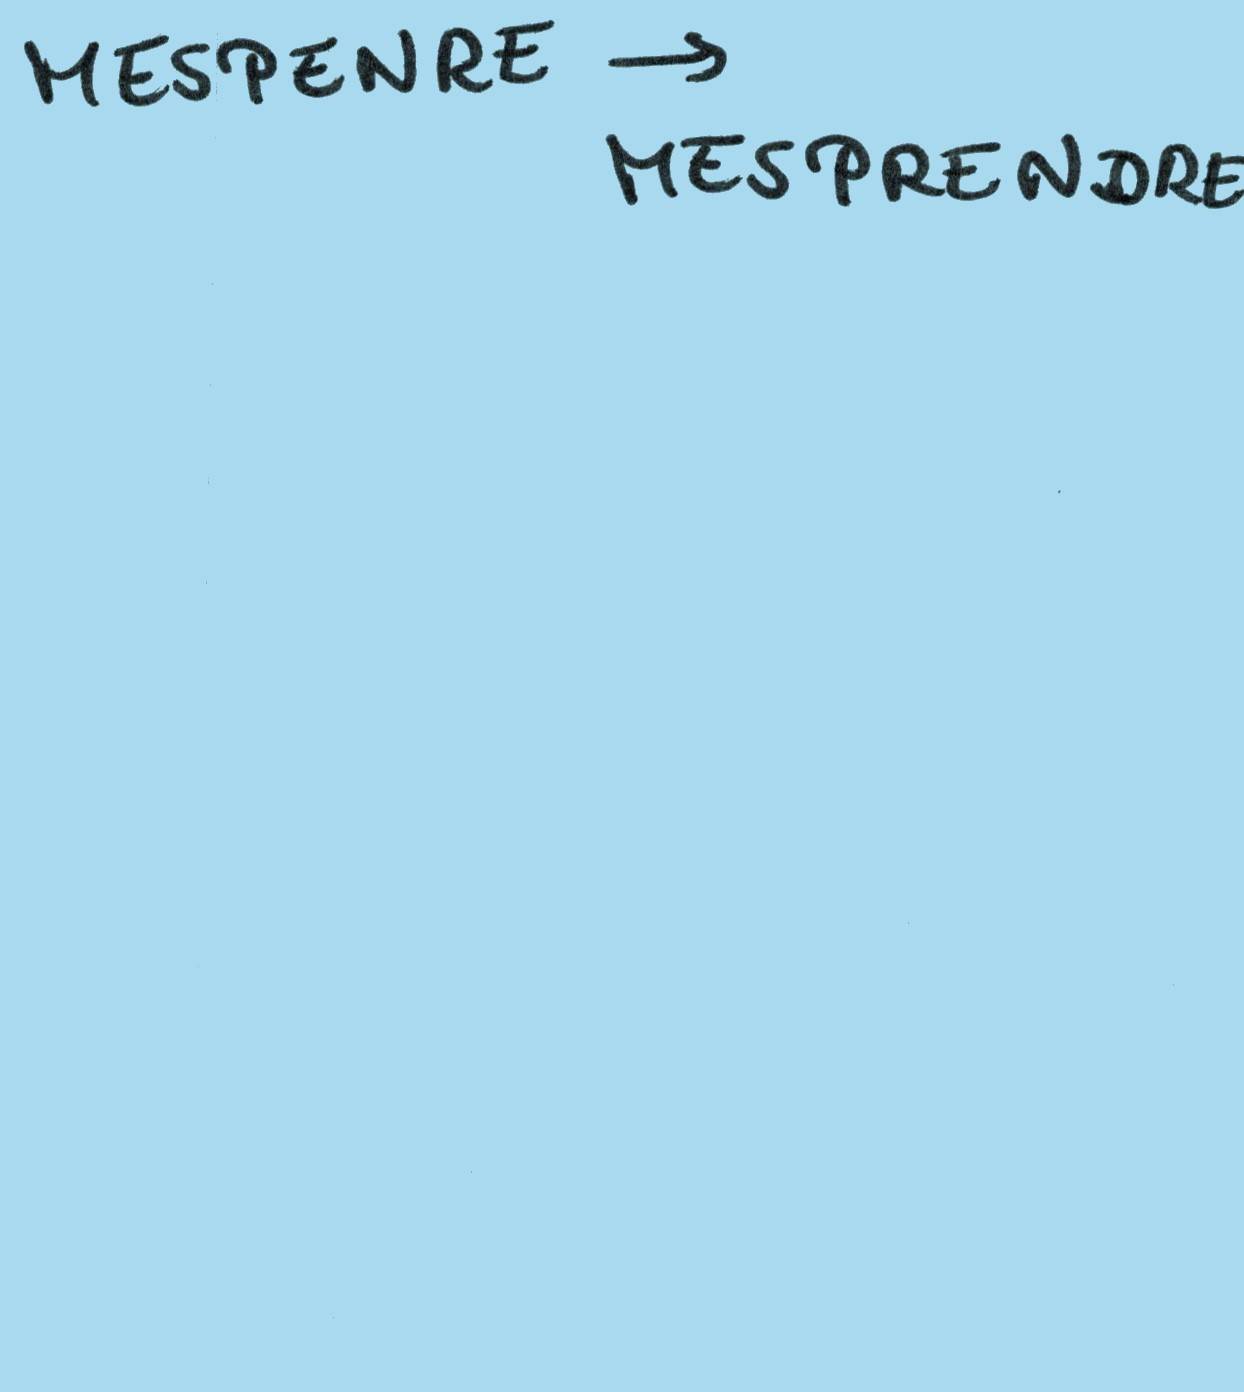 MESPENRE →
MESPRENDRE